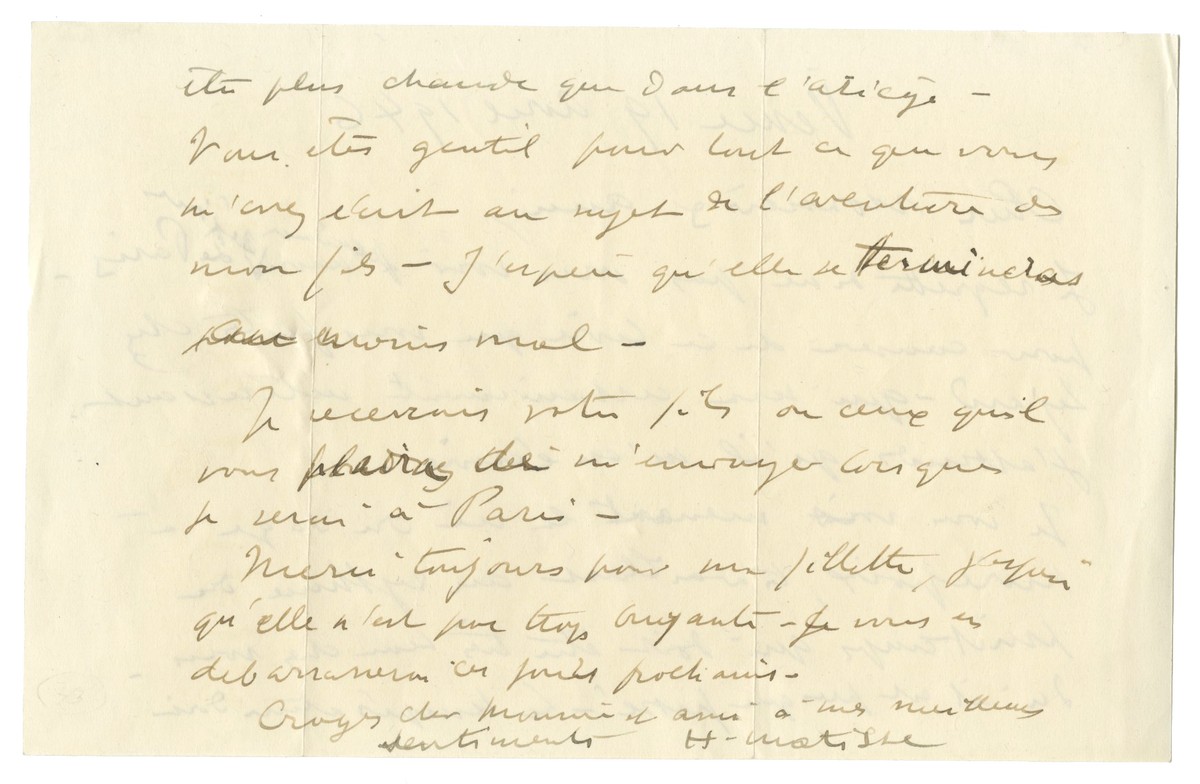 être plus chaude que dans l'ariège —
Vous êtes gentil pour tout ce que vous
m'avez écrit au sujet de l'aventure de
mon fils — J'espère qu'elle se terminera
moins mal —
Je recevrais votre fils ou ceux qu'il
vous plaira de m'envoyer lorsque
je serai à Paris —
Merci toujours pour ma fillette, j'espère
qu'elle n'est pas trop bruyante — Je vous en
débarrasserai ces jours prochains —
Croyez cher Monsieur et ami à mes meilleurs
sentiments H-matisse